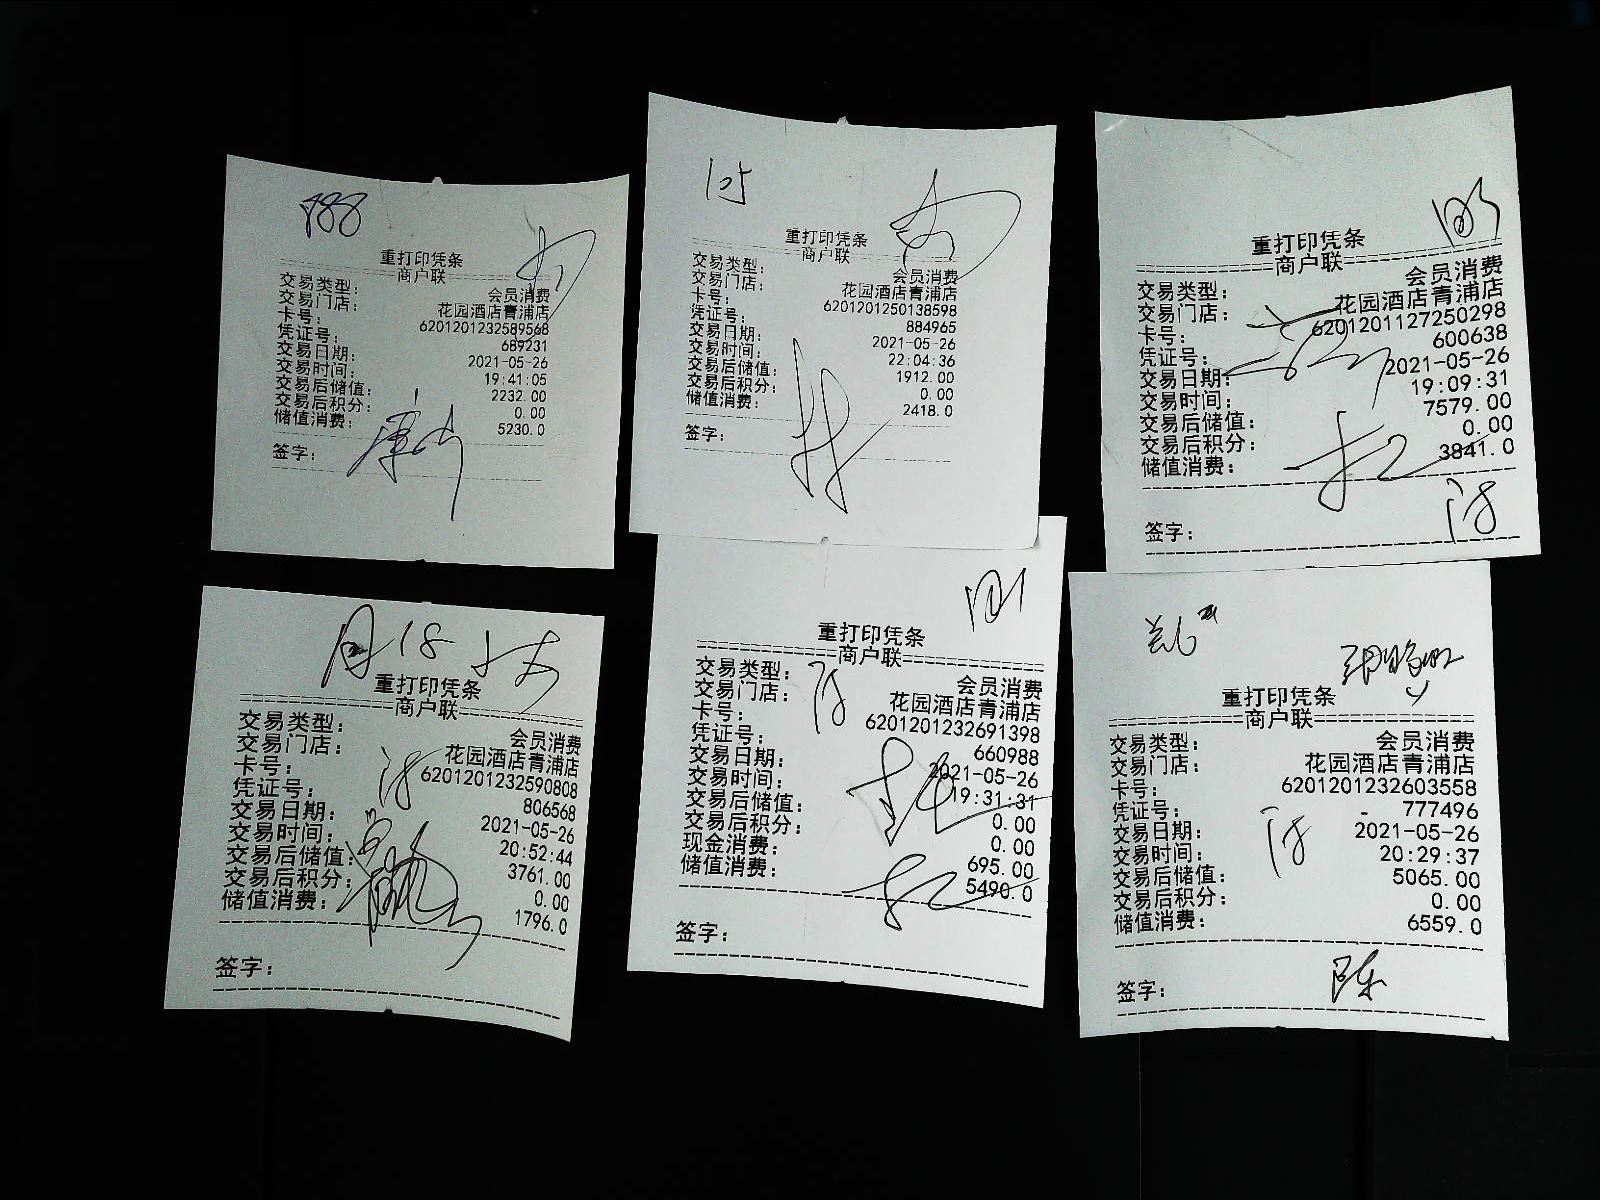 788
重打印凭条
商户联
交易类型： 会员消费
交易门店： 花园酒店青浦店
卡号： 6201201232589568
凭证号： 689231
交易日期： 2021-05-26
交易时间： 19:41:05
交易后储值： 2232.00
交易后积分： 0.00
储值消费： 5230.0
签字：
105
重打印凭条
商户联
交易类型： 会员消费
交易门店： 花园酒店青浦店
卡号： 6201201250138598
凭证号： 884965
交易日期： 2021-05-26
交易时间： 22:04:36
交易后储值： 1912.00
交易后积分： 0.00
储值消费： 2418.0
签字：
重打印凭条
商户联
交易类型： 会员消费
交易门店： 花园酒店青浦店
卡号： 6201201127250298
凭证号： 600638
交易日期： 2021-05-26
交易时间： 19:09:31
交易后储值： 7579.00
交易后积分： 0.00
储值消费： 3841.0
签字：
重打印凭条
商户联
交易类型： 会员消费
交易门店： 花园酒店青浦店
卡号： 6201201232590808
凭证号： 806568
交易日期： 2021-05-26
交易时间： 20:52:44
交易后储值： 3761.00
交易后积分： 0.00
储值消费： 1796.0
签字：
重打印凭条
商户联
交易类型： 会员消费
交易门店： 花园酒店青浦店
卡号： 6201201232691398
凭证号： 660988
交易日期： 2021-05-26
交易时间： 19:31:31
交易后储值： 0.00
交易后积分： 0.00
现金消费： 695.00
储值消费： 5490.0
签字：
重打印凭条
商户联
交易类型： 会员消费
交易门店： 花园酒店青浦店
卡号： 6201201232603558
凭证号： 777496
交易日期： 2021-05-26
交易时间： 20:29:37
交易后储值： 5065.00
交易后积分： 0.00
储值消费： 6559.0
签字： 陈